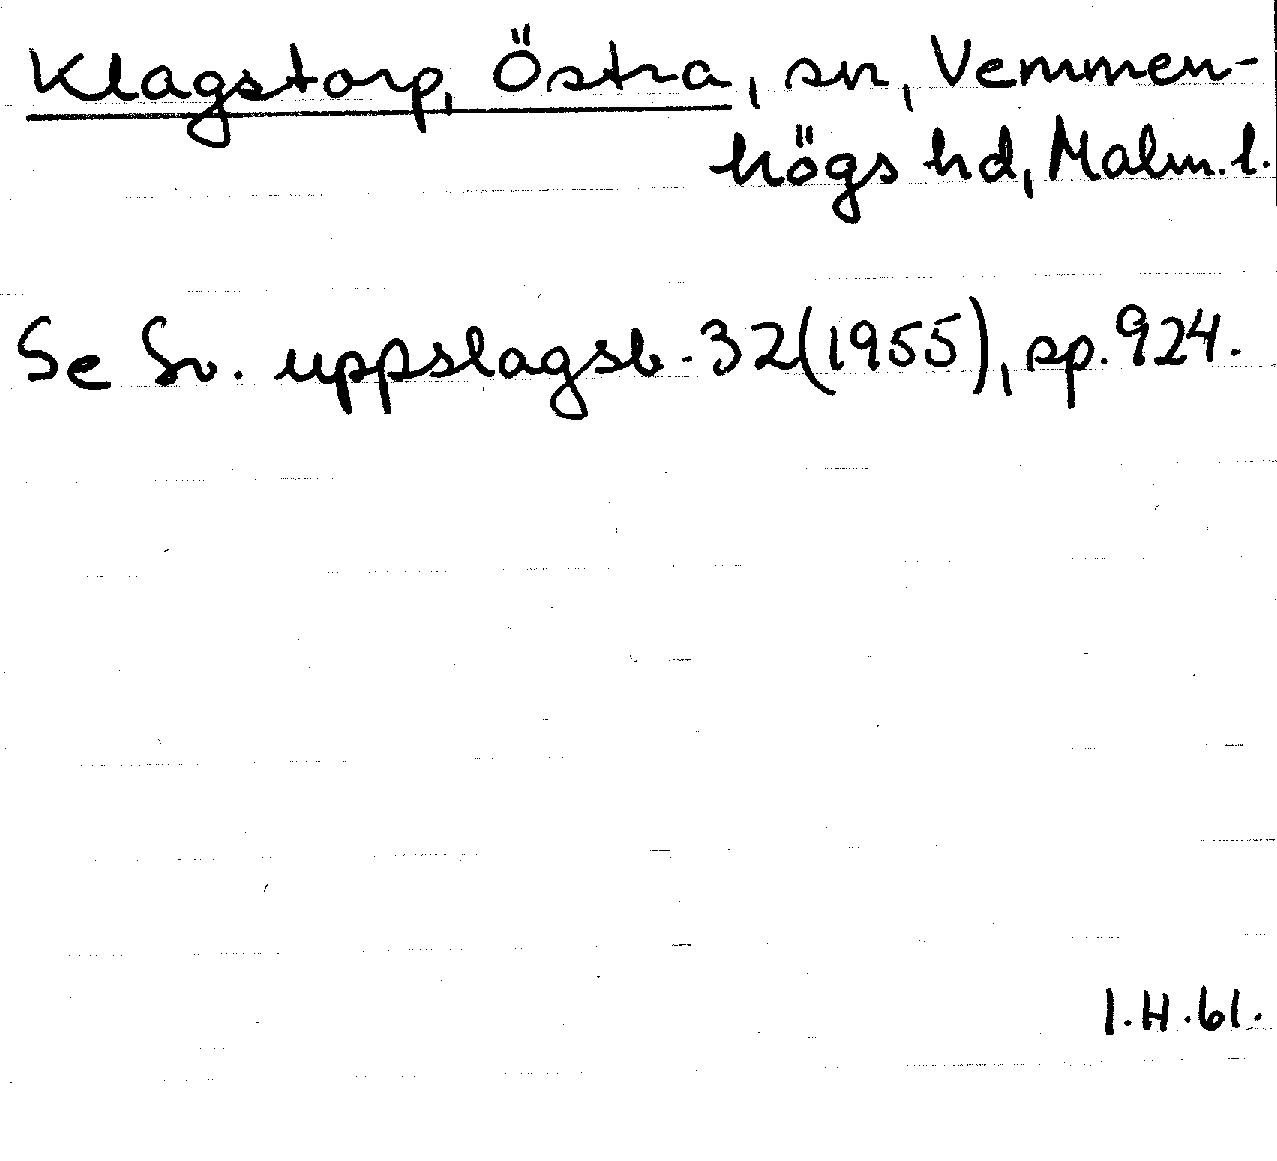 Klagstorp, Östra, sn, Vemmen-
högs hd, Malm. l.
Se Sv. uppslagsb. 32 (1955), sp. 924.
I.H.61.